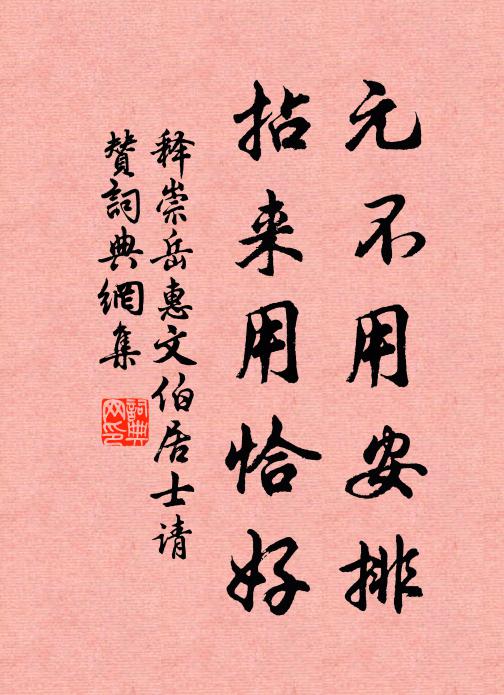 元不用安排
拈来用恰好
释崇岳惠文伯居士请
赞詞典網集
詞典
网印